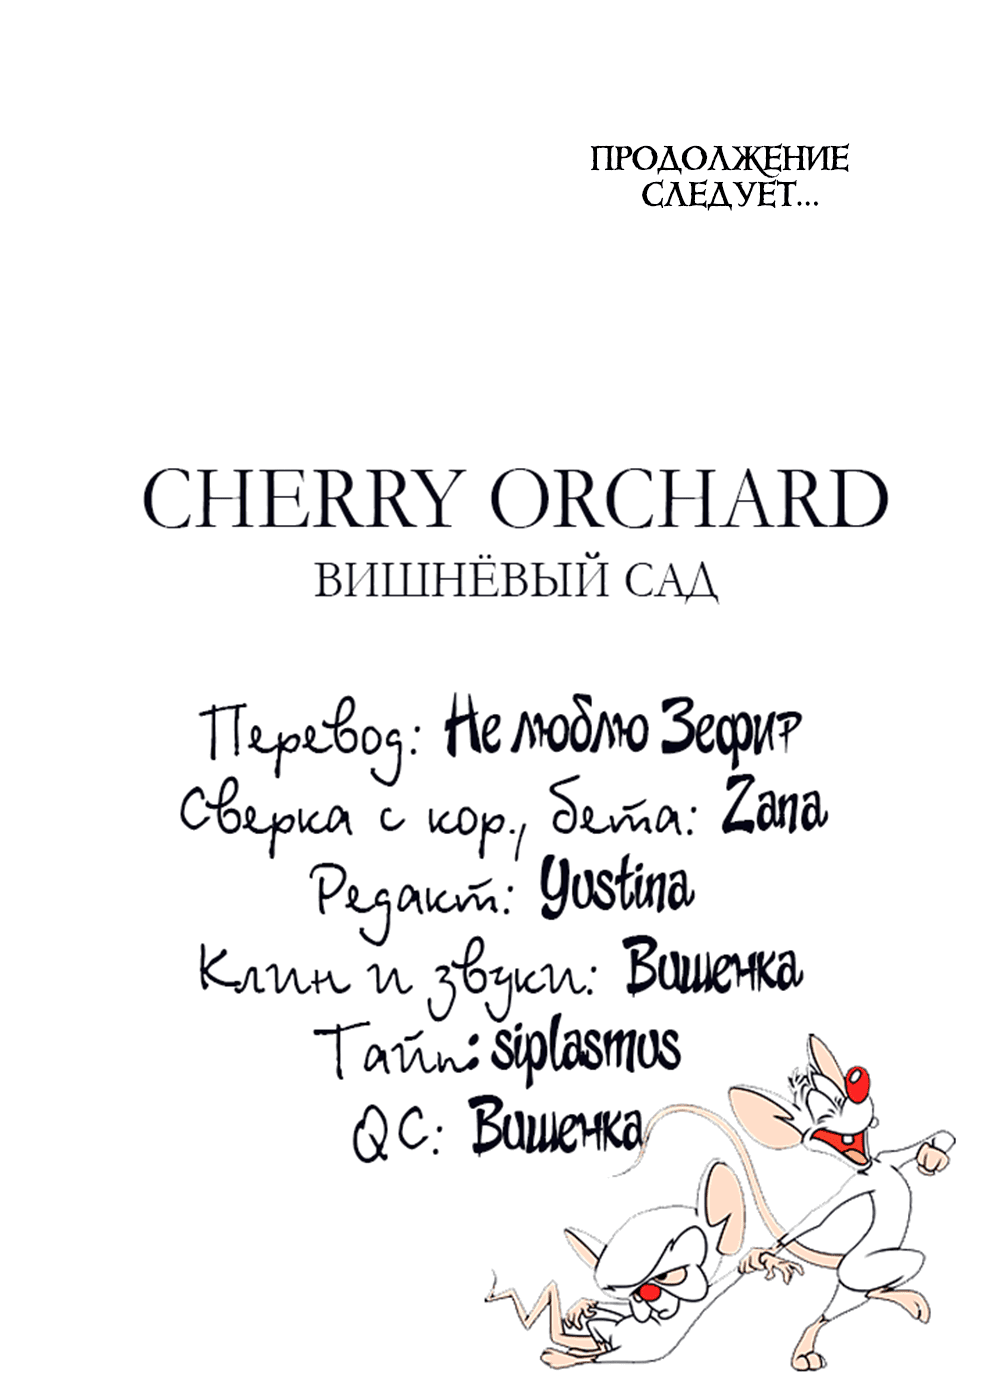 ПРОДОЛЖЕНИЕ
СЛЕДУЕТ...
CHERRY ORCHARD
ВИШНЁВЫЙ САД
Перевод: Не люблю Зефир
Сверка с кор., бета: Zana
Редакт: Yustina
Клин и звуки: Вишенка
Тайп: siplasmus
QC: Вишенка